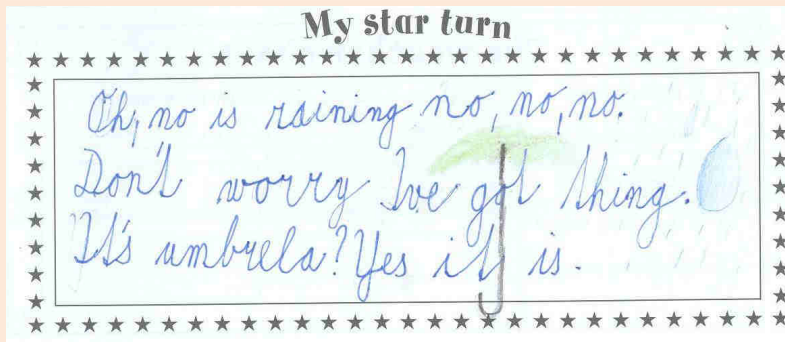 My star turn
Oh, no is raining no, no, no.
Don't worry I've got thing.
It's umbrela? Yes it is.